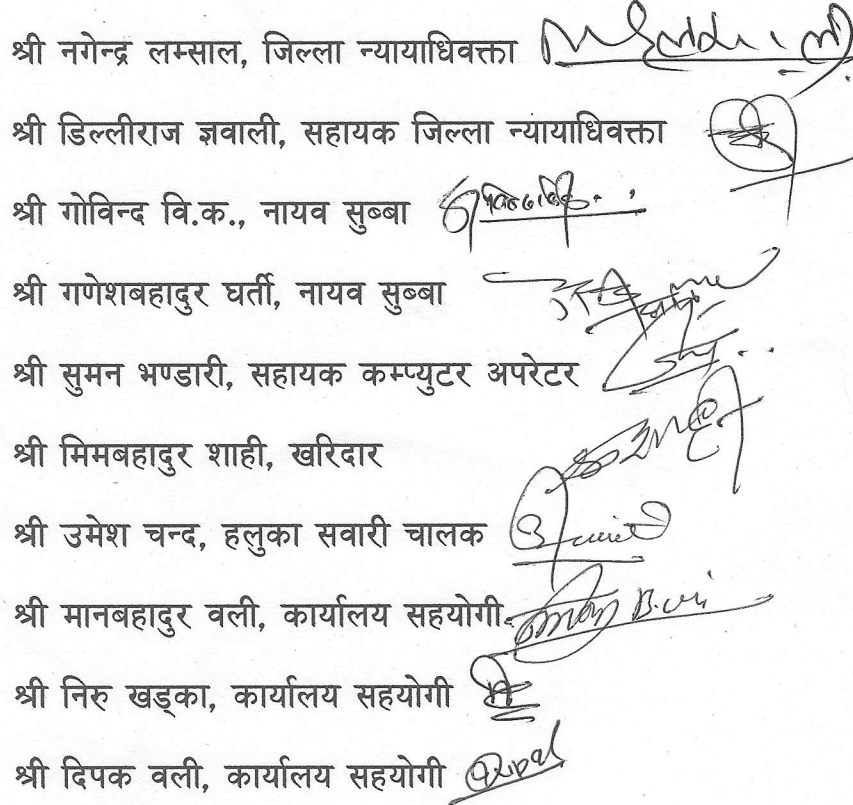 श्री नगेन्द्र लम्साल, जिल्ला न्यायाधिवक्ता
श्री डिल्लीराज ज्ञवाली, सहायक जिल्ला न्यायाधिवक्ता
श्री गोविन्द वि.क., नायव सुब्बा
श्री गणेशबहादुर घर्ती, नायव सुब्बा
श्री सुमन भण्डारी, सहायक कम्प्युटर अपरेटर
श्री मिमबहादुर शाही, खरिदार
श्री उमेश चन्द, हलुका सवारी चालक
श्री मानबहादुर वली, कार्यालय सहयोगी
श्री निरु खड्का, कार्यालय सहयोगी
श्री दिपक वली, कार्यालय सहयोगी